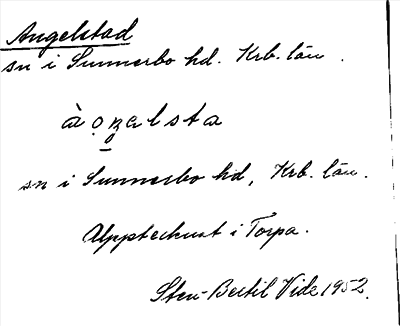 Angelstad
sn i Sunnerbo hd. Krb. län.
sn i Sunnerbo hd, Krb. län.
Upptecknat i Torpa.
Sten-Bertil Vide 1952.